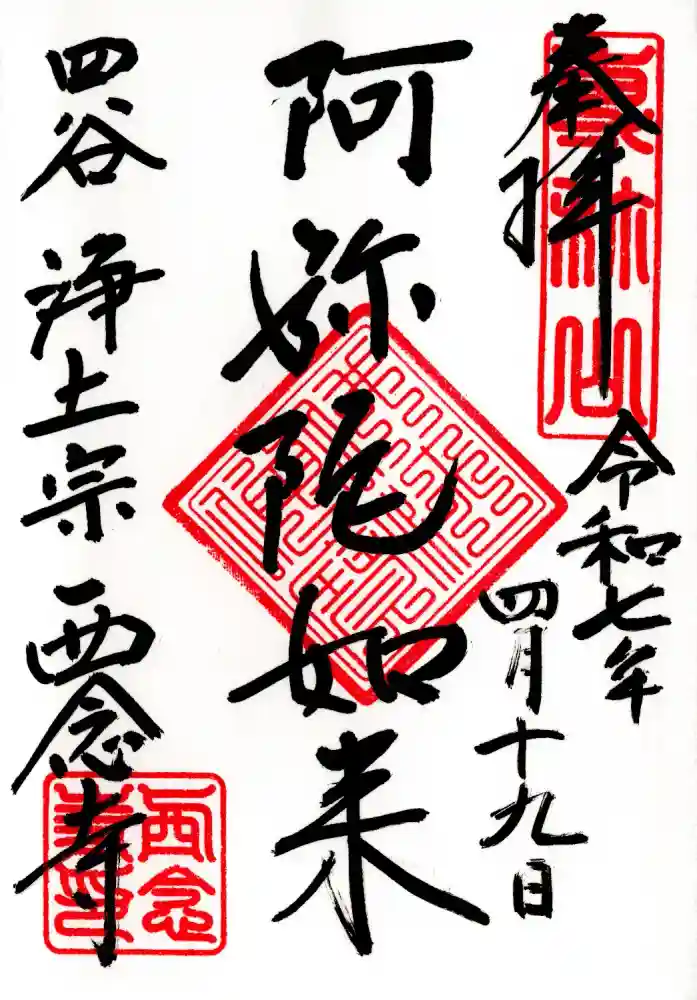 奉拝
令和七年
四月十九日
阿弥陀如来
四谷 浄土宗 西念寺
西念
寺印